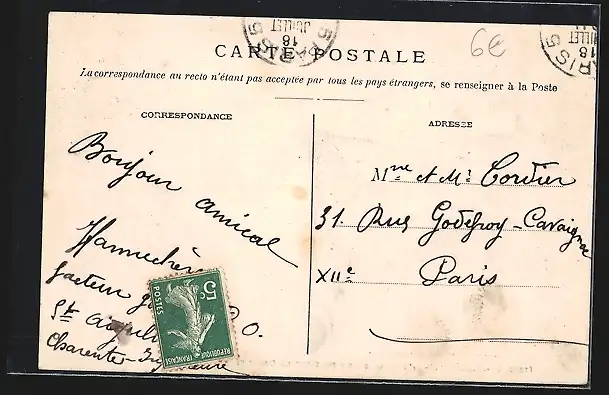 PARIS 5
18
JUILLET
6€
PARIS 5
18
JUILLET
CARTE POSTALE
La correspondance au recto n'étant pas acceptée par tous les pays étrangers, se renseigner à la Poste
CORRESPONDANCE
Bonjour amical
facteur
St
Charente-
5c
POSTES
REPUBLIQUE FRANÇAISE
ADRESSE
Mme et Mr Cordier
31. Rue Godefroy-Cavaignac
XIIe Paris